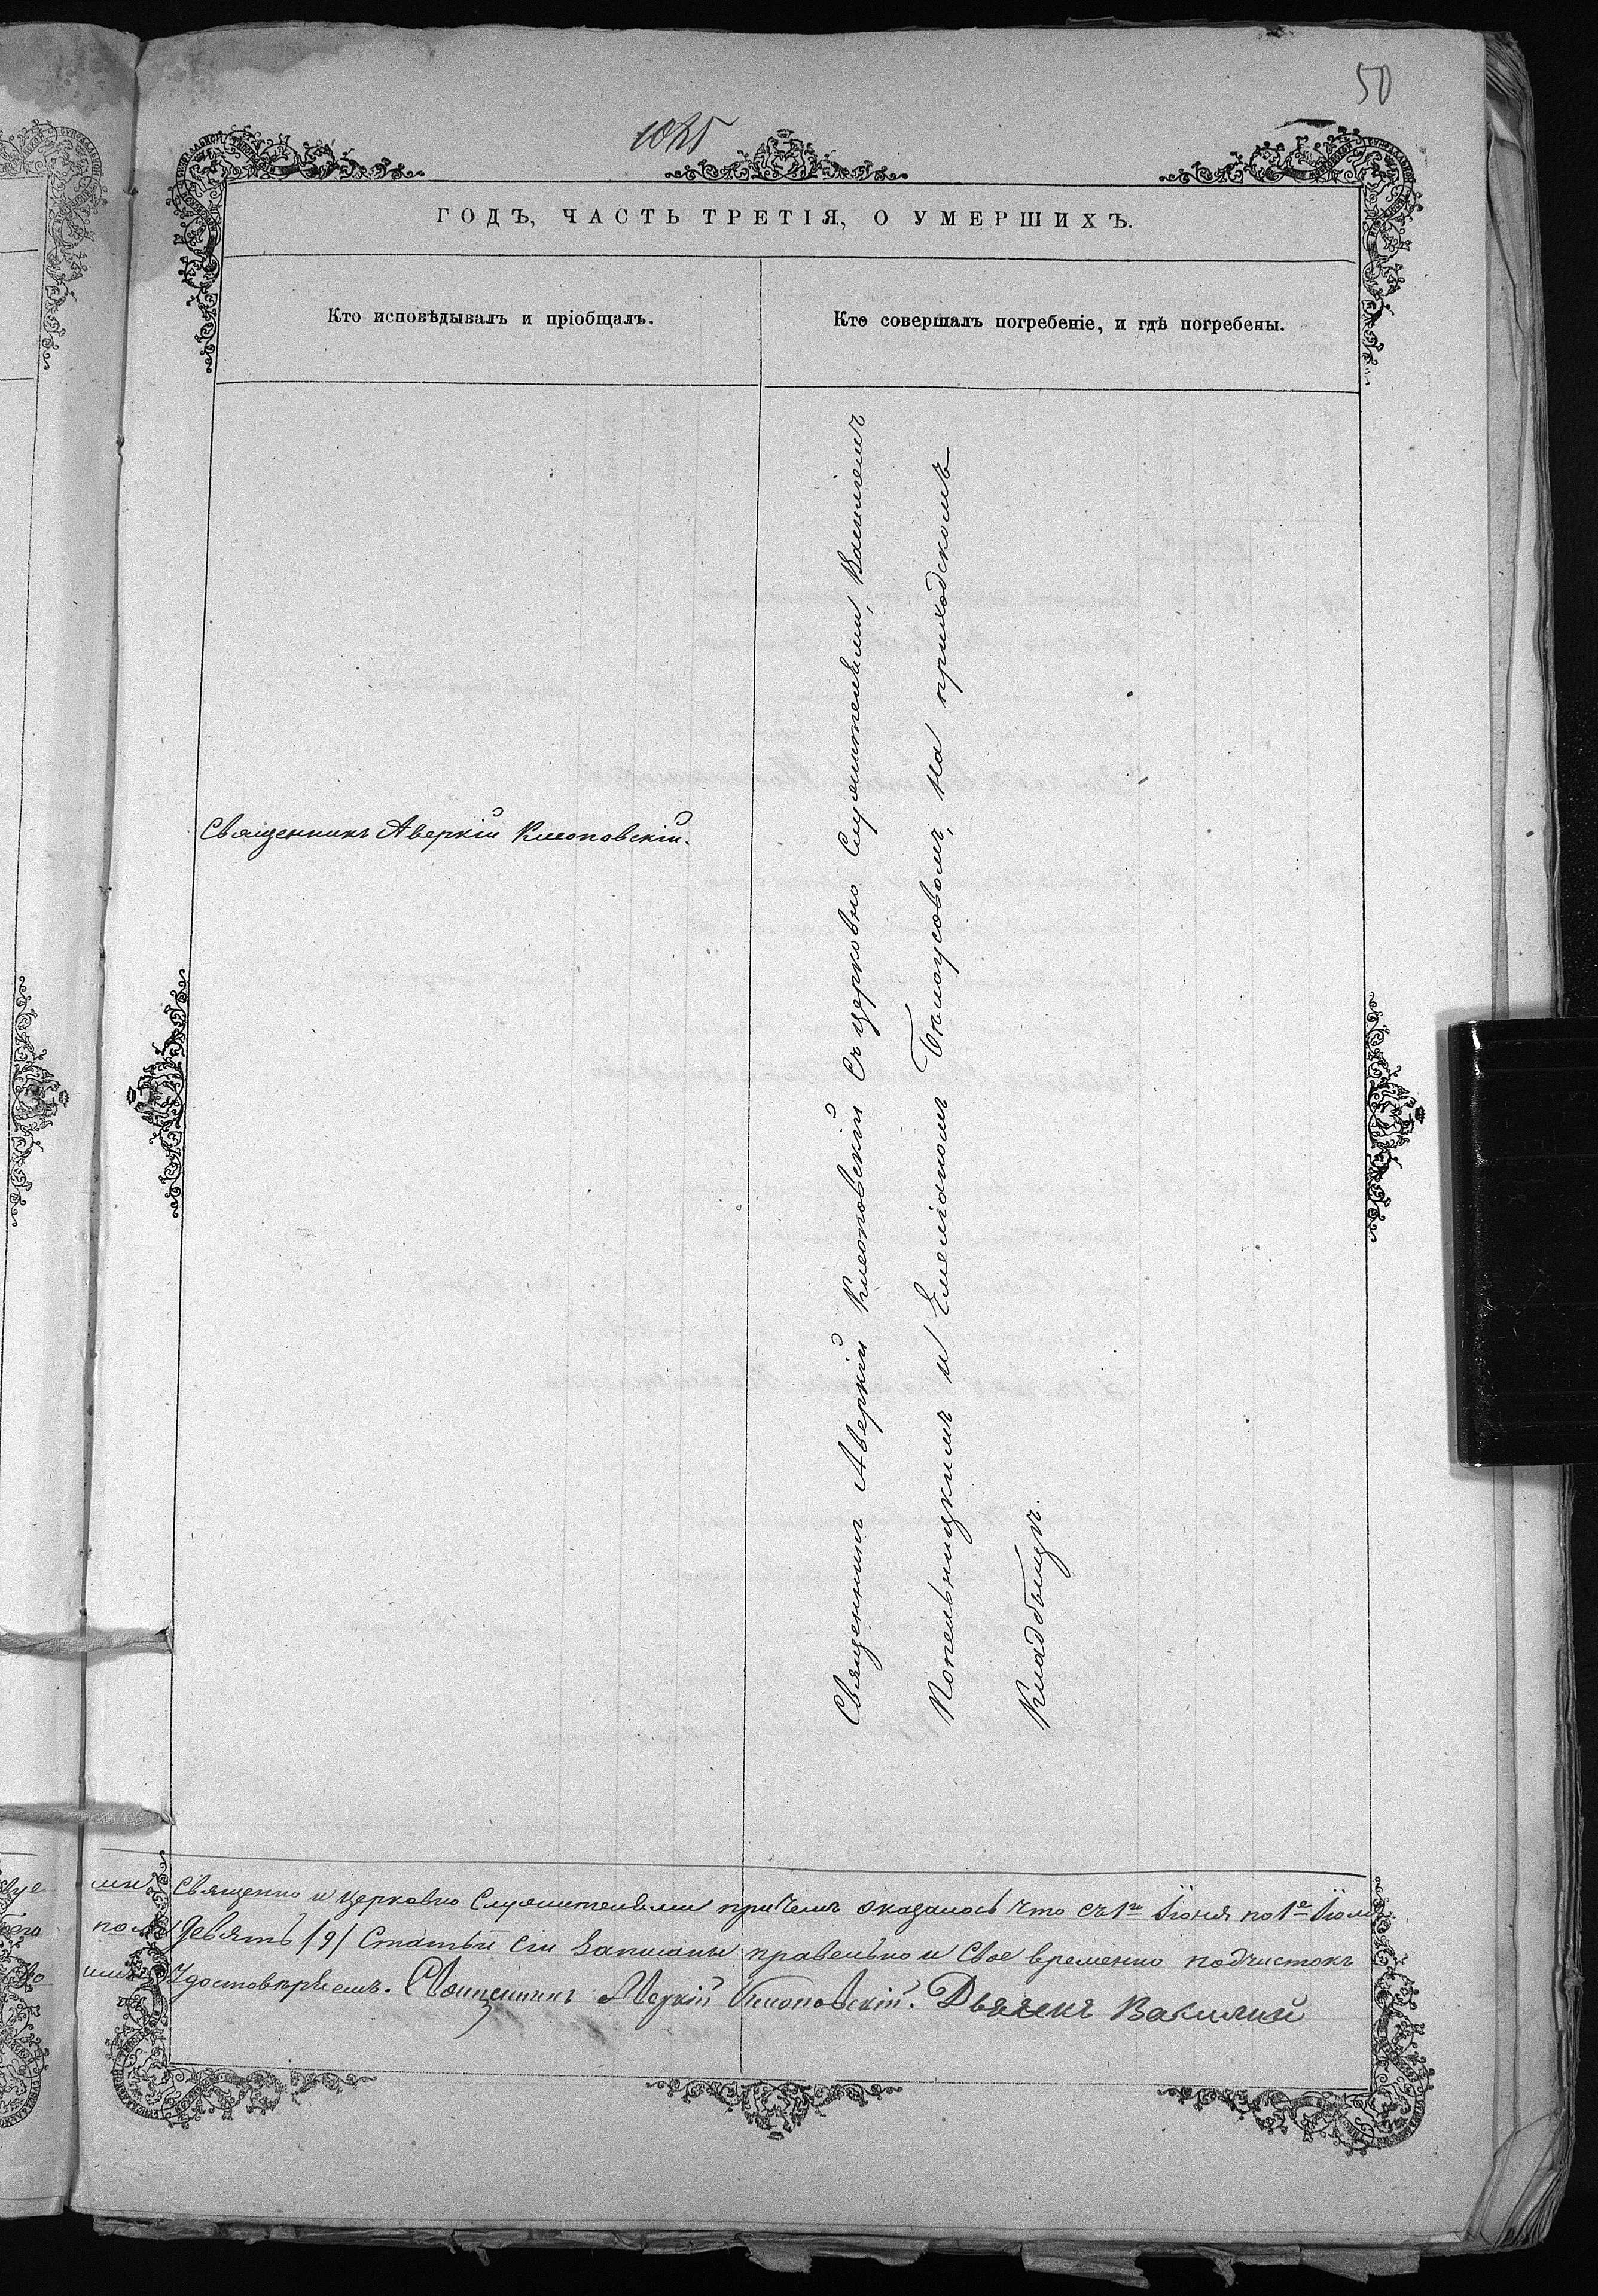 50
ГОДЪ, ЧАСТЬ ТРЕТІЯ, О УМЕРШИХЪ.
Кто исповѣдывалъ и пріобщалъ.
Кто совершалъ погребеніе, и гдѣ погребены.
Священникъ Аверкій Клоповскій.
Священникъ Аверкій Клоповскій съ церковно служителями, Василіемъ
Копельницкимъ и Емеліаномъ Бѣлоусовомъ, на приходскомъ
Кладбищѣ.
Священно и Церковно Служителями при чемъ оказалось что съ 1го Іюня по 1е Іюля
девять /9/ Статьи сіи Записаны правельно и Свое временно подчистокъ
Удостовѣряемъ. Священникъ Аверкій Клоповскій. Дьячекъ Василий